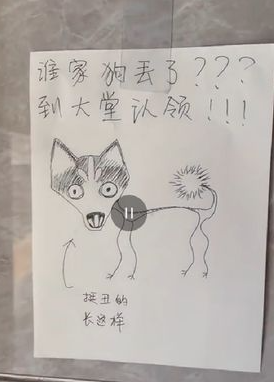 谁家狗丢了???
到大堂认领!!!
挺丑的
长这样